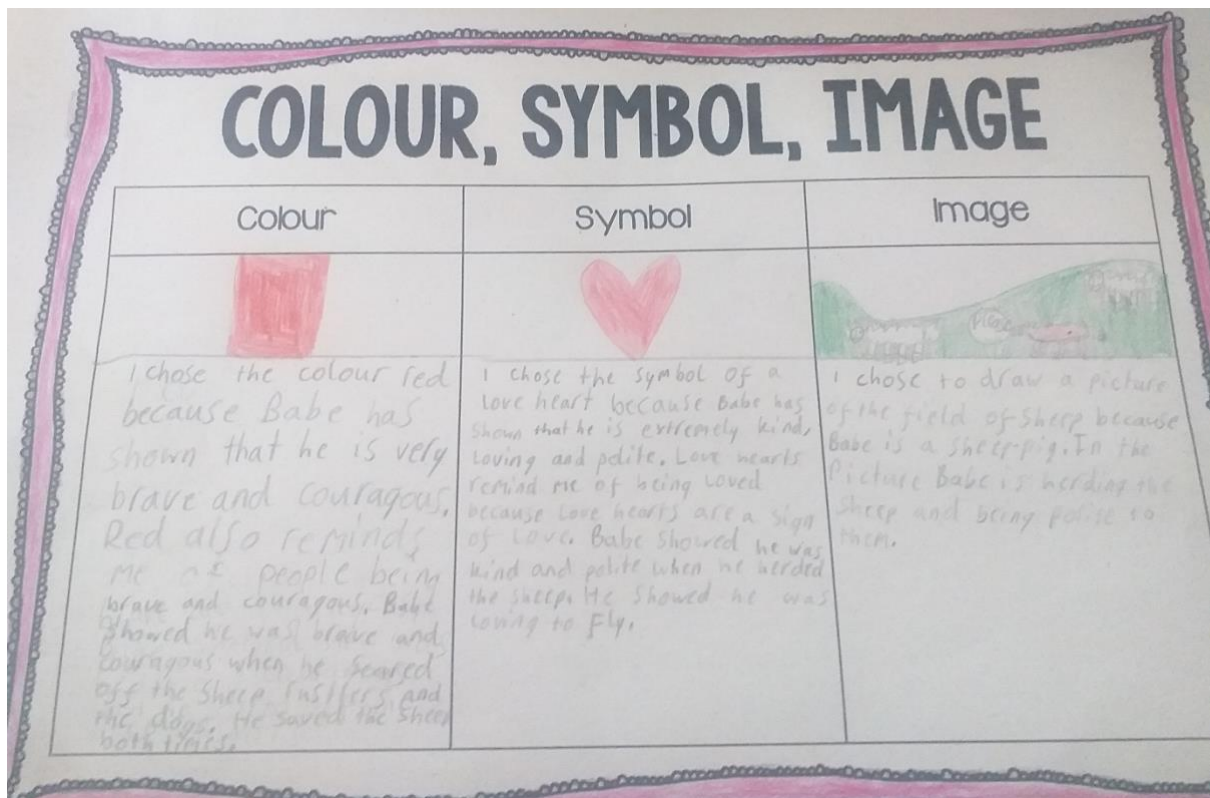 COLOUR, SYMBOL, IMAGE
Colour
I chose the colour red
because Babe has
shown that he is very
brave and couragous.
Red also reminds
me of people being
brave and couragous. Babe
showed he was brave and
couragous when he scared
off the sheep rustlers and
the dogs. He saved the sheep
both times.
Symbol
I chose the symbol of a
love heart because Babe has
shown that he is extremely kind,
loving and polite. Love hearts
remind me of being loved
because love hearts are a sign
of love. Babe showed he was
kind and polite when he herded
the sheep. He showed he was
loving to Fly.
Image
Please
I chose to draw a picture
of the field of sheep because
Babe is a sheep-pig. In the
Picture Babe is herding the
sheep and being polite to
them.